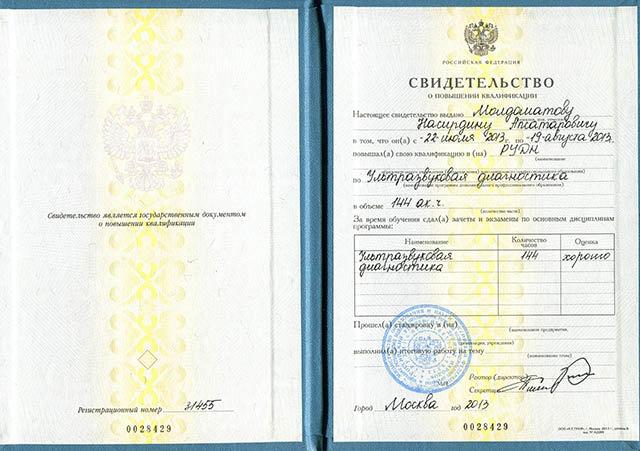 Свидетельство является государственным документом
о повышении квалификации
Регистрационный номер 31455
0028429
РОССИЙСКАЯ ФЕДЕРАЦИЯ
СВИДЕТЕЛЬСТВО
О ПОВЫШЕНИИ КВАЛИФИКАЦИИ
Настоящее свидетельство выдано Молдаматову
Насирдину Апсатаровичу
в том, что он(а) с «22» июля 2013 г. по «19» августа 2013 г.
повышал(а) свою квалификацию в (на) РУДН
(наименование)
по Ультразвуковая диагностика
в объеме 144 ак.ч.
(количество часов)
За время обучения сдал(а) зачеты и экзамены по основным дисциплинам
программы:
Наименование Количество часов Оценка
Ультразвуковая диагностика 144 хорошо
Прошел(а) стажировку в (на)
(наименование предприятия,
организации, учреждения)
выполнил(а) итоговую работу на тему
(наименование темы)
Ректор (Директор)
Секретарь
Город Москва год 2013
0028429